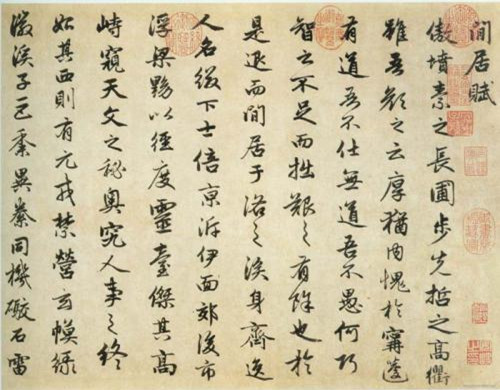 閒居賦
傲墳素之長圃步先哲之高衢
雖吾顏之云厚猶內愧於寗蘧
有道吾不仕無道吾不愚何巧
智之不足而拙艱之有餘也於
是退而閒居于洛之涘身齊逸
人名綴下士倍京泝伊面郊後市
浮梁黝以徑度靈臺傑其高
峙窺天文之秘奧究人事之終
始其西則有元戎禁營玄幙綠
徽溪子巨黍異絭同機礮石雷